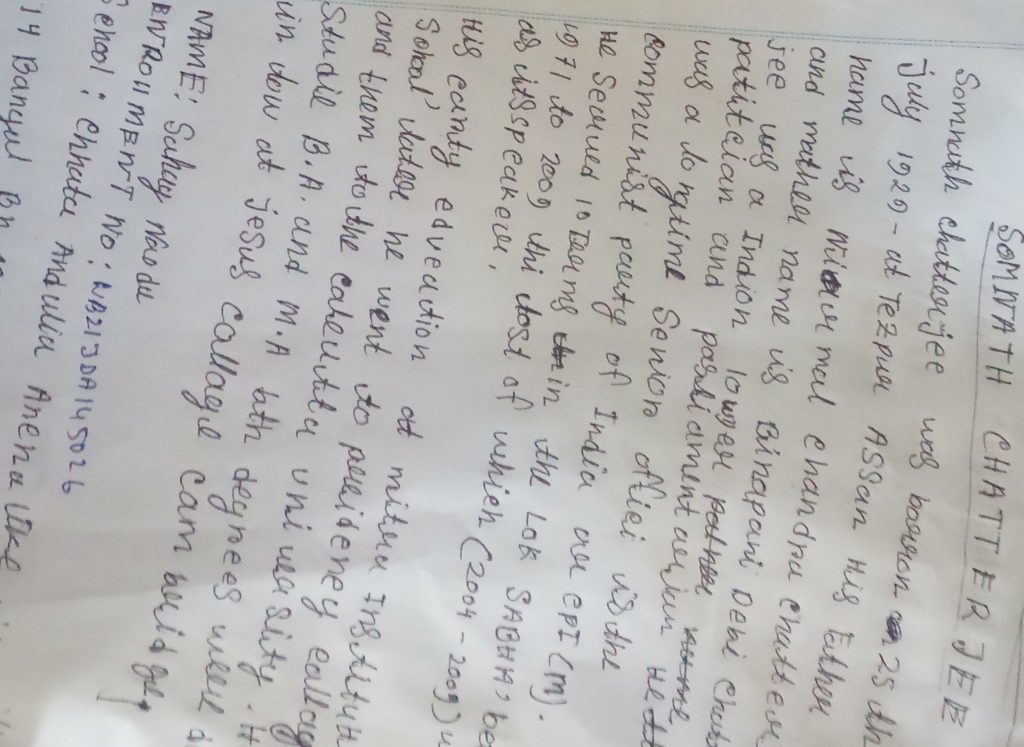 SOMNATH CHATTERJEE
Somnath chatterjee was bouron 25 th
July 1929 - at Tezpur ASSan His Futhen
name is Nirmal chandra chatter
and mathen name is Binapani Deni
jee was a Indion lowyer
patitcian and parliamentarian He
was a longtime Senion offici is the
communist party of India ar CPI (M).
He Seruied 10 Tearms in the LOK SABHA,
1971 to 2009 thi dost of which (2004 - 2009)
as itsspeaker,
His eanty edveaution at mitra Institu
Sohool, luter he went to presideney
and them to the caleutta university.
Studie B.A. and M.A bth degrees were
in dow at jesus Callage Cam bridge,
NAME: Suhay Nande
ENROllMENT NO: WB21JDA145026
School: Chhuta Andulia Anena
14 Bangul